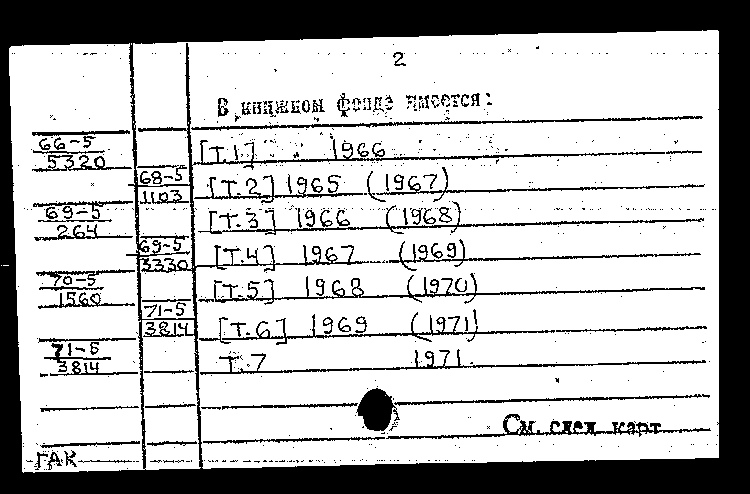 2
В книжном фонде имеется:
66-5
5320 [Т.1] 1966
68-5
1103 [Т.2] 1965 (1967)
69-5
264 [Т.3] 1966 (1968)
69-5
3330 [Т.4] 1967 (1969)
70-5
1560 [Т.5] 1968 (1970)
71-5
3814 [Т.6] 1969 (1971)
71-5
3814 Т.7 1971.
См. след. карт.
ГАК